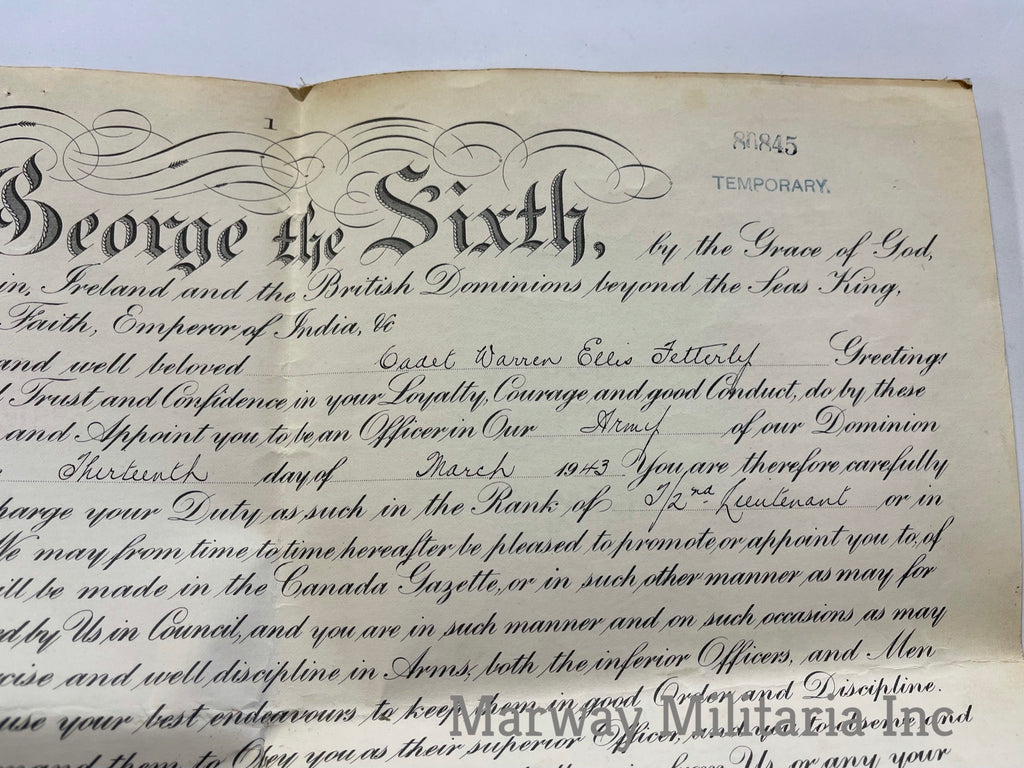 1
80845
TEMPORARY.
George the Sixth, by the Grace of God,
Ireland and the British Dominions beyond the Seas King,
Faith, Emperor of India, &c
and well beloved Cadet Warren Ellis Fetterly Greeting:
Trust and Confidence in your Loyalty, Courage and good Conduct, do by these
and Appoint you to be an Officer in Our Army of our Dominion
Thirteenth day of March 1943 You are therefore carefully
your Duty as such in the Rank of T/2nd Lieutenant or in
We may from time to time hereafter be pleased to promote or appoint you to, of
be made in the Canada Gazette, or in such other manner as may for
by Us in Council, and you are in such manner and on such occasions as may
and well discipline in Arms, both the inferior Officers, and Men
use your best endeavours to keep them in good Order and Discipline.
them to Obey you as their superior Officer, and you to observe and
from Us, or any your
Marway Militaria Inc